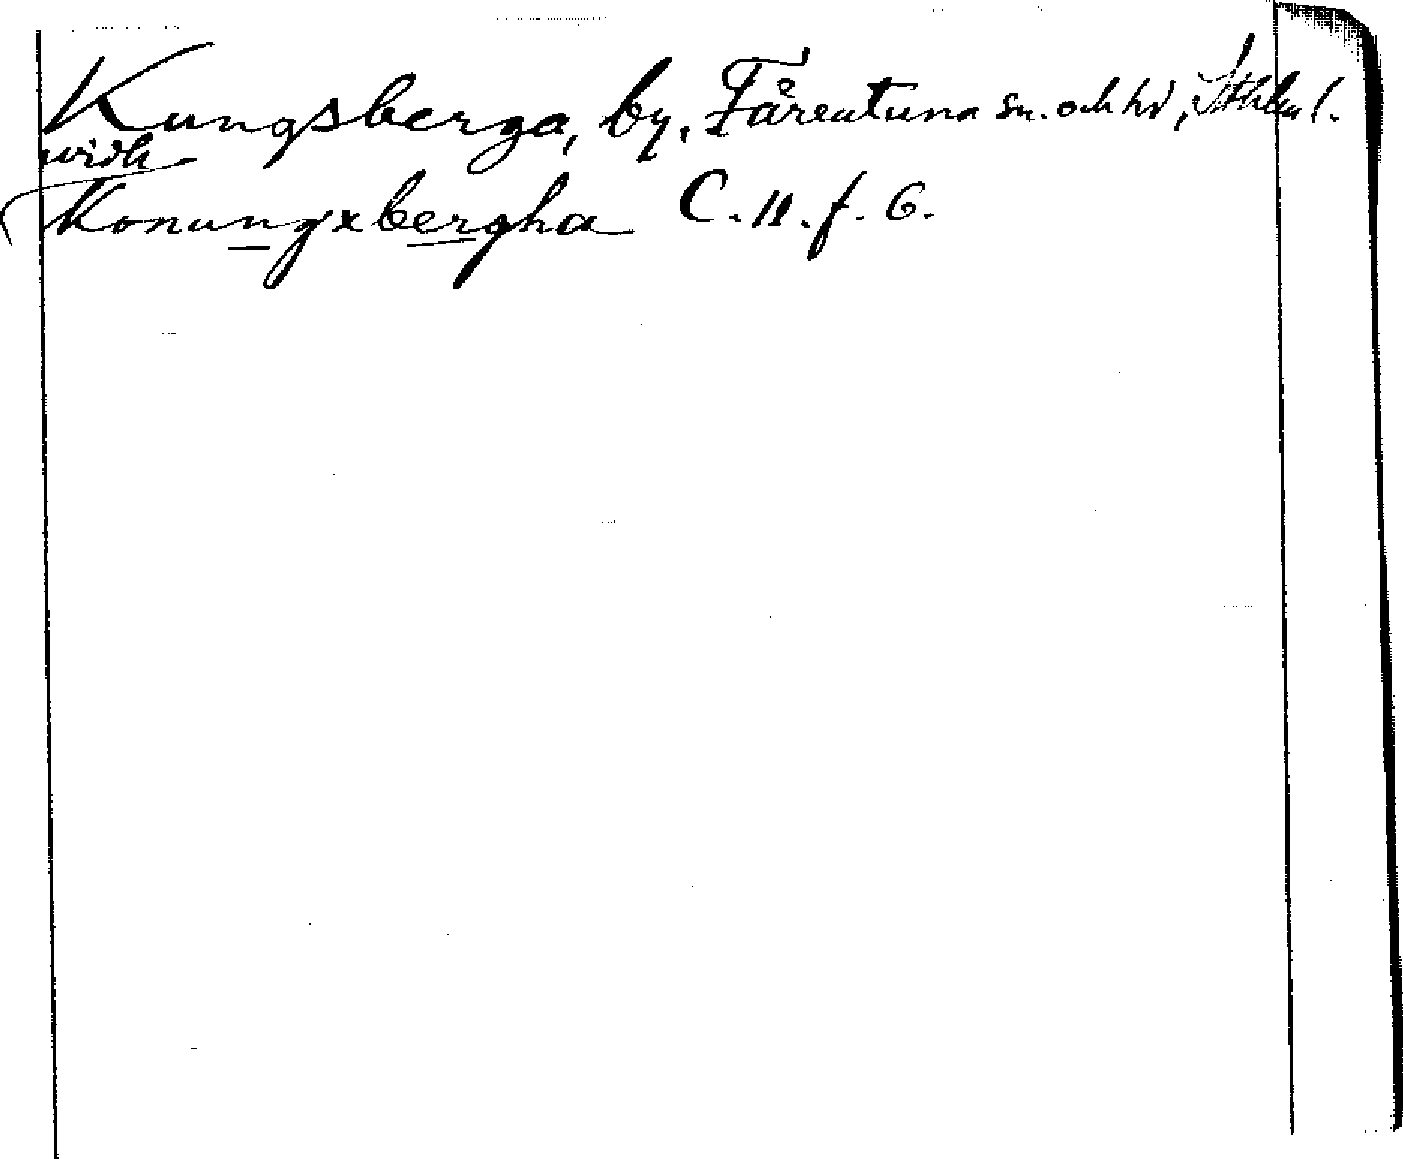 Kungsberga, by, Färentuna sn. och hd, Sthlms l.
widh
Konungxbergha C. 11. f. 6.